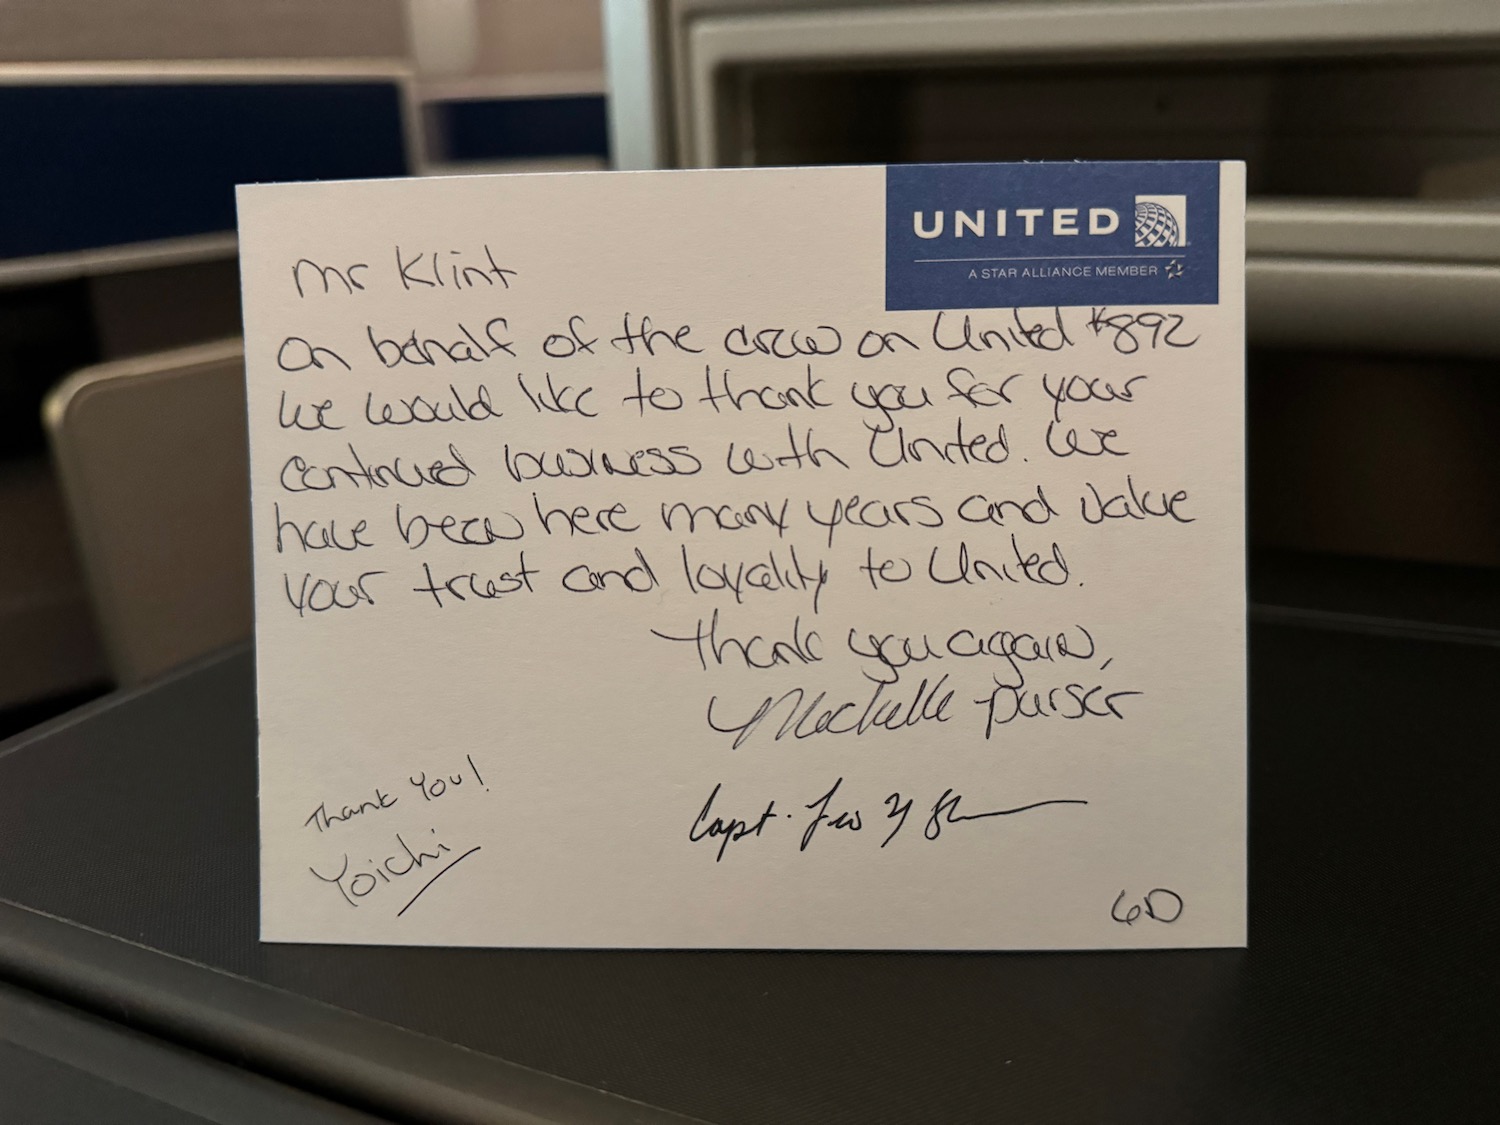 UNITED
A STAR ALLIANCE MEMBER
Mr Klint
On behalf of the crew on United #892
we would like to thank you for your
continued business with United. We
have been here many years and value
your trust and loyalty to United.
Thank you again,
Michelle purser
Thank You!
Yoichi
Capt.
6D